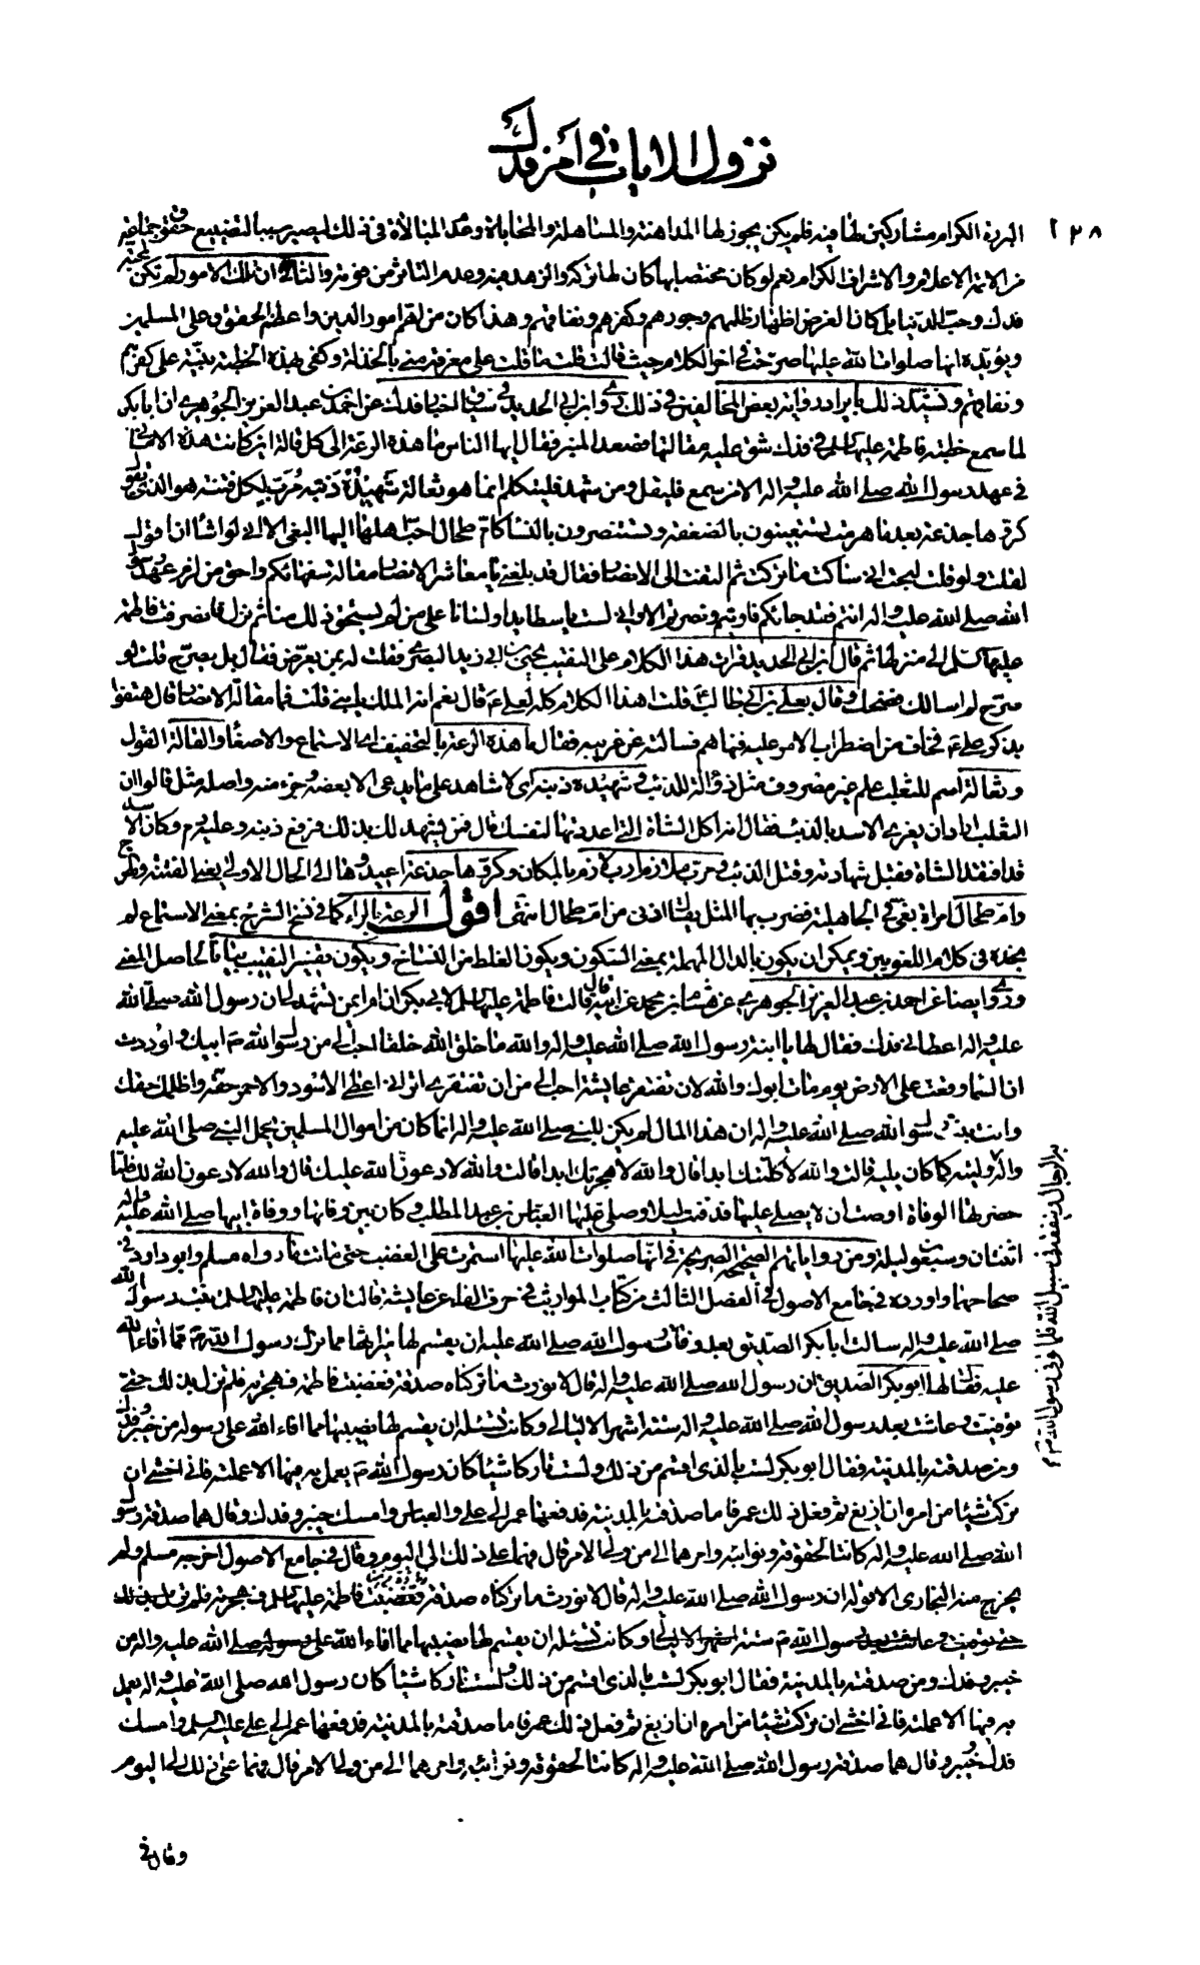 نزول الايات في امر فدك
١٢٨
البررة الكرام مشاركين لها فيه فلم يكن يجوز لها المداهنة والمساهلة والمحاباة وعدم المبالاة في ذلك ليصير سببا لتضييع حقوق جماعة
من الائمة الاعلام والاشراف الكرام نعم لو كان مختصا بها كان لها تركه والزهد فيه وعدم التاثر من فوته والثاني ان تلك الامور لم تكن لمحبة
فدك وحب الدنيا بل كان الغرض اظهار ظلمهم وجورهم وكفرهم ونفاقهم وهذا كان من اهم امور الدين واعظم الحقوق على المسلمين
ويؤيده انها صلوات الله عليها صرحت في اخر الكلام حيث قالت قلت ما قلت على معرفة مني بالخذلة وكفى بهذه الخطبة بينة على كفرهم
ونفاقهم ونشيد ذلك بايراد رواية بعض المخالفين في ذلك روى ابن ابي الحديد في سياق اخبار فدك عن احمد بن عبد العزيز الجوهري ان ابا بكر
لما سمع خطبة فاطمة عليها السلم في فدك شق عليه مقالتها فصعد المنبر فقال ايها الناس ما هذه الرعة الى كل قالة اين كانت هذه الاماني
في عهد رسول الله صلى الله عليه واله الا من سمع فليقل ومن شهد فليتكلم انما هو ثعالة شهيده ذنبه مرب لكل فتنة هو الذي يقول
كروها جذعة بعد ما هرمت يستعينون بالضعفة ويستنصرون بالنساء كام طحال احب اهلها اليها البغي الا اني لو اشاء ان اقول
لقلت ولو قلت لبحت اني ساكت ما تركت ثم التفت الى الانصار فقال قد بلغني يا معاشر الانصار مقالة سفهائكم واحق من لزم عهد رسول
الله صلى الله عليه واله انتم فقد جائكم فاويتم ونصرتم الا واني لست باسطا يدا ولسانا على من لم يستحق ذلك منا ثم نزل فانصرفت فاطمة
عليها السلم الى منزلها ثم قال ابن ابي الحديد قرات هذا الكلام على النقيب يحيى بن ابي زيد البصري فقلت له بمن يعرض فقال بل يصرح قلت لو
صرح لم اسالك فضحك وقال بعلي بن ابي طالب ع قلت اهذا الكلام كله لعلي ع قال نعم انه الملك يا بني قلت فما مقالة الانصار قال هتفوا
بذكر علي ع فخاف من اضطراب الامر عليه فنهاهم فسالته عن غريبه فقال ما هذه الرعة بالتخفيف اي الاستماع والاصغاء والقالة القول
وثعالة اسم للثعلب علم غير مصروف مثل ذؤالة للذئب وشهيده ذنبه اي لا شاهد على ما يدعي الا بعضه وجزء منه واصله مثل قالوا ان
الثعلب اراد ان يغري الاسد بالذئب فقال انه اكل الشاة التي اعددتها لنفسك قال فمن يشهد لك بذلك فرفع ذنبه وعليه دم وكان الاسد
قد افتقد الشاة فقبل شهادته وقتل الذئب ومرب ملازم ارب لازم بالمكان وكروها جذعة اعيدوها الى الحال الاولى يعني الفتنة والهرج
وام طحال امراة بغي في الجاهلية فضرب بها المثل يقال ازنى من ام طحال انتهى اقول الرعة بالراء كما في نسخ الشرح بمعنى الاستماع لم
نجده في كلام اللغويين ويمكن ان يكون بالدال المهملة بمعنى السكون ويكون الغلط من النساخ ويكون تفسير النقيب بيانا لحاصل المعنى
وروى ايضا عن احمد بن عبد العزيز الجوهري عن هشام بن محمد عن ابيه قال قالت فاطمة عليها السلم لابي بكر ان ام ايمن تشهد لي ان رسول الله صلى الله
عليه واله اعطاني فدك فقال لها يا ابنة رسول الله صلى الله عليه واله والله ما خلق الله خلقا احب الي من رسول الله ص ابيك ولوددت
ان السماء وقعت على الارض يوم مات ابوك والله لان تفتقر عايشة احب الي من ان تفتقري اتراني اعطي الاسود والاحمر حقه واظلمك حقك
وانت بنت رسول الله صلى الله عليه واله ان هذا المال لم يكن للنبي صلى الله عليه واله انما كان من اموال المسلمين يحمل النبي صلى الله عليه
بر الرجال وينفقه في سبيل الله فلما توفي رسول الله ص
واله وليته كما كان يليه قالت والله لا كلمتك ابدا قال والله لا هجرتك ابدا قالت والله لادعون الله عليك قال والله لادعون الله لك فلما
حضرتها الوفاة اوصت ان لا يصلي عليها فدفنت ليلا وصلى عليها العباس بن عبد المطلب وكان بين وفاتها ووفاة ابيها صلى الله عليه واله
اثنتان وسبعون ليلة ومن رواياتهم الصحيحة الصريحة في انها صلوات الله عليها استمرت على الغضب حتى ماتت ما رواه مسلم وابو داود في
صحاحهما واورده في جامع الاصول في الفصل الثالث من كتاب المواريث في حرف الفاء عن عايشة قالت ان فاطمة عليها السلم بنت رسول الله
صلى الله عليه واله سالت ابا بكر الصديق بعد وفاة رسول الله صلى الله عليه ان يقسم لها ميراثها مما ترك رسول الله ص مما افاء الله
عليه فقال لها ابو بكر الصديق ان رسول الله صلى الله عليه واله قال لا نورث ما تركناه صدقة فغضبت فاطمة فهجرته فلم تزل بذلك حتى
توفيت وعاشت بعد رسول الله صلى الله عليه واله ستة اشهر الا ليالي وكانت تسئله ان يقسم لها نصيبها مما افاء الله على رسوله من خيبر وفدك
ومن صدقته بالمدينة فقال ابو بكر لست بالذي اقسم من ذلك ولست تاركا شيئا كان رسول الله ص يعمل به فيها الا عملته فاني اخشى ان
تركت شيئا من امره ان ازيغ ثم فعل ذلك عمر فاما صدقته بالمدينة فدفعها عمر الى علي والعباس وامسك خيبر وفدك وقال هما صدقة رسول
الله صلى الله عليه واله كانتا لحقوقه ونوائبه وامرهما الى من ولي الامر قال فهما على ذلك الى اليوم وقال في جامع الاصول اخرجه مسلم ولم
يخرج منه البخاري الا قوله ان رسول الله صلى الله عليه واله قال لا نورث ما تركناه صدقة فغضبت فاطمة عليها السلم فهجرته فلم تزل بذلك
حتى توفيت وعاشت بعد رسول الله ص ستة اشهر الا ليالي وكانت تسئله ان يقسم لها نصيبها مما افاء الله على رسوله صلى الله عليه واله من
خيبر وفدك ومن صدقته بالمدينة فقال ابو بكر لست بالذي اقسم من ذلك ولست تاركا شيئا كان رسول الله صلى الله عليه واله يعمل
به فيها الا عملته فاني اخشى ان تركت شيئا من امره ان ازيغ ثم فعل ذلك عمر فاما صدقته بالمدينة فدفعها عمر الى علي عليه السلم وامسك
فدك وخيبر وقال هما صدقة رسول الله صلى الله عليه واله كانتا لحقوقه ونوائبه وامرهما الى من ولي الامر قال فهما على ذلك الى اليوم
وقال في